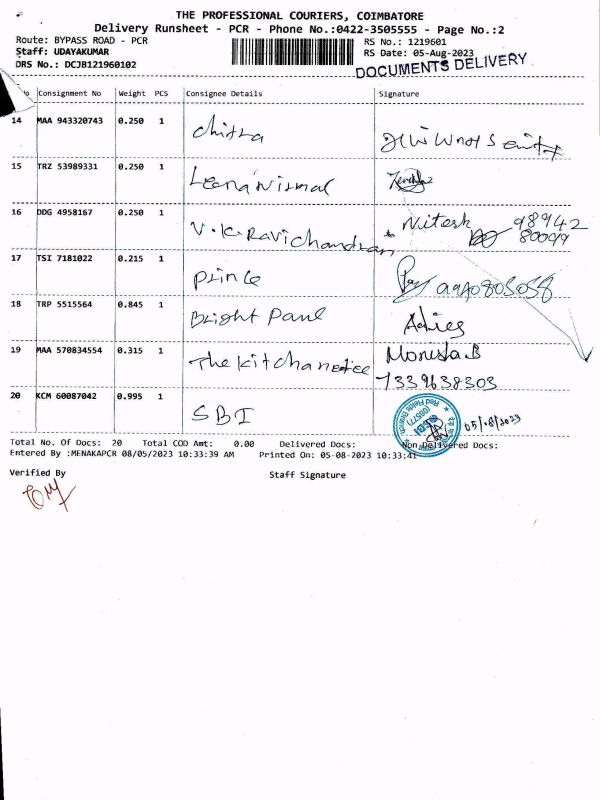 THE PROFESSIONAL COURIERS, COIMBATORE
Delivery Runsheet - PCR - Phone No.:0422-3505555 - Page No.:2
Route: BYPASS ROAD - PCR RS No.: 1219601
Staff: UDAYAKUMAR RS Date: 05-Aug-2023
DRS No.: DCJB121960102 DOCUMENTS DELIVERY
No Consignment No Weight PCS Consignee Details Signature
14 MAA 943320743 0.250 1 Chitra
15 TRZ 53989331 0.250 1 Leenanirmal
16 DDG 4958167 0.250 1 V.K.Ravichandran Nitesh 98942
80099
17 TSI 7181022 0.215 1 Prince 9940805058
18 TRP 5515564 0.845 1 Bright Pane
19 MAA 570834554 0.315 1 The Kitchanetiee Monisha.B
7339638303
20 KCM 60087042 0.995 1 SBI 05/08/2023
Total No. Of Docs: 20 Total COD Amt: 0.00 Delivered Docs: Non Delivered Docs:
Entered By :MENAKAPCR 08/05/2023 10:33:39 AM Printed On: 05-08-2023 10:33:41
Verified By Staff Signature